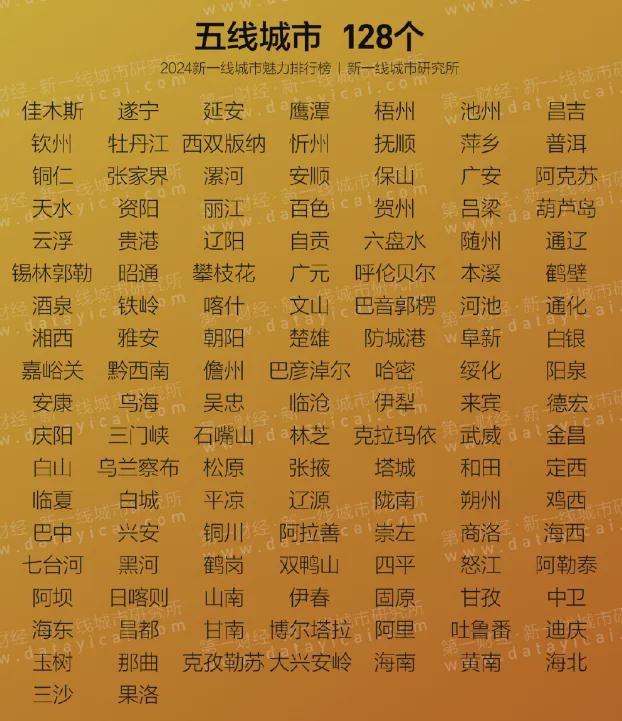 五线城市 128个
2024新一线城市魅力排行榜 | 新一线城市研究所
佳木斯 遂宁 延安 鹰潭 梧州 池州 昌吉
钦州 牡丹江 西双版纳 忻州 抚顺 萍乡 普洱
铜仁 张家界 漯河 安顺 保山 广安 阿克苏
天水 资阳 丽江 百色 贺州 吕梁 葫芦岛
云浮 贵港 辽阳 自贡 六盘水 随州 通辽
锡林郭勒 昭通 攀枝花 广元 呼伦贝尔 本溪 鹤壁
酒泉 铁岭 喀什 文山 巴音郭楞 河池 通化
湘西 雅安 朝阳 楚雄 防城港 阜新 白银
嘉峪关 黔西南 儋州 巴彦淖尔 哈密 绥化 阳泉
安康 乌海 吴忠 临沧 伊犁 来宾 德宏
庆阳 三门峡 石嘴山 林芝 克拉玛依 武威 金昌
白山 乌兰察布 松原 张掖 塔城 和田 定西
临夏 白城 平凉 辽源 陇南 朔州 鸡西
巴中 兴安 铜川 阿拉善 崇左 商洛 海西
七台河 黑河 鹤岗 双鸭山 四平 怒江 阿勒泰
阿坝 日喀则 山南 伊春 固原 甘孜 中卫
海东 昌都 甘南 博尔塔拉 阿里 吐鲁番 迪庆
玉树 那曲 克孜勒苏 大兴安岭 海南 黄南 海北
三沙 果洛
第一财经·新一线城市研究所
www.datayicai.com